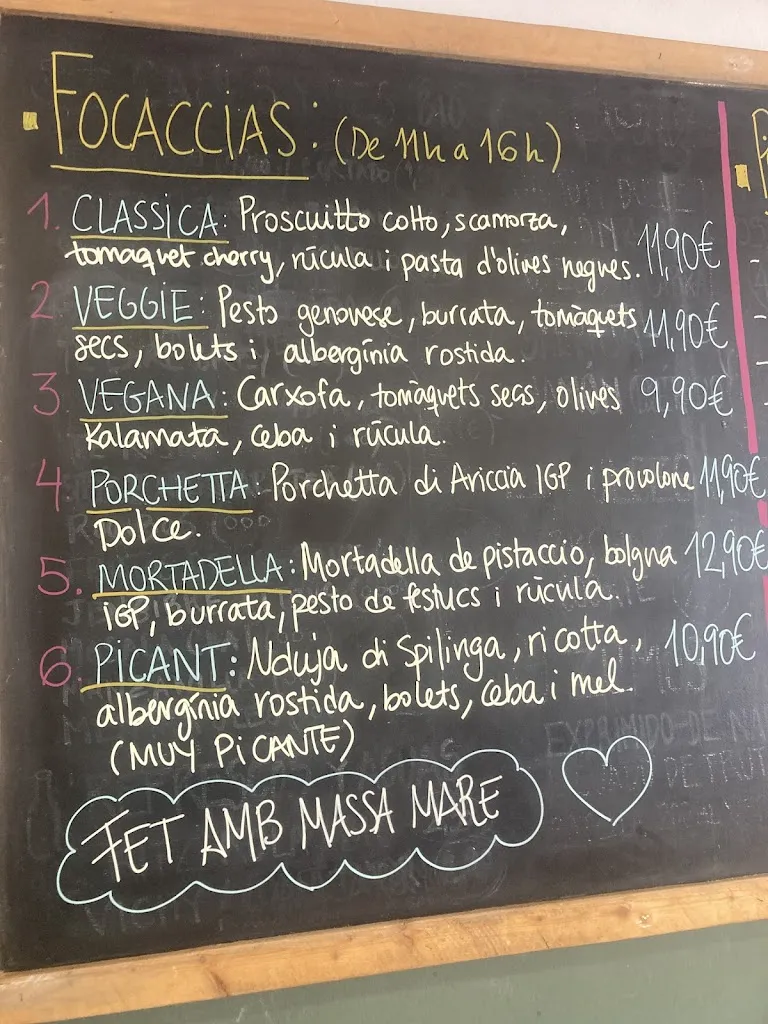 FOCACCIAS: (De 11h a 16h)
1. CLASSICA: Proscuitto cotto, scamorza,
tomaquet cherry, rúcula i pasta d'olives negres. 11,90€
2. VEGGIE: Pesto genovese, burrata, tomàquets 11,90€
secs, bolets i albergínia rostida.
3. VEGANA: Carxofa, tomàquets secs, olives 9,90€
Kalamata, ceba i rúcula.
4. PORCHETTA: Porchetta di Ariccia IGP i provolone 11,90€
Dolce.
5. MORTADELLA: Mortadella de pistaccio, bolgna 12,90€
IGP, burrata, pesto de festucs i rúcula.
6. PiCANT: Nduja di Spilinga, ricotta, 10,90€
albergínia rostida, bolets, ceba i mel.
(MUY PiCANTE)
FET AMB MASSA MARE